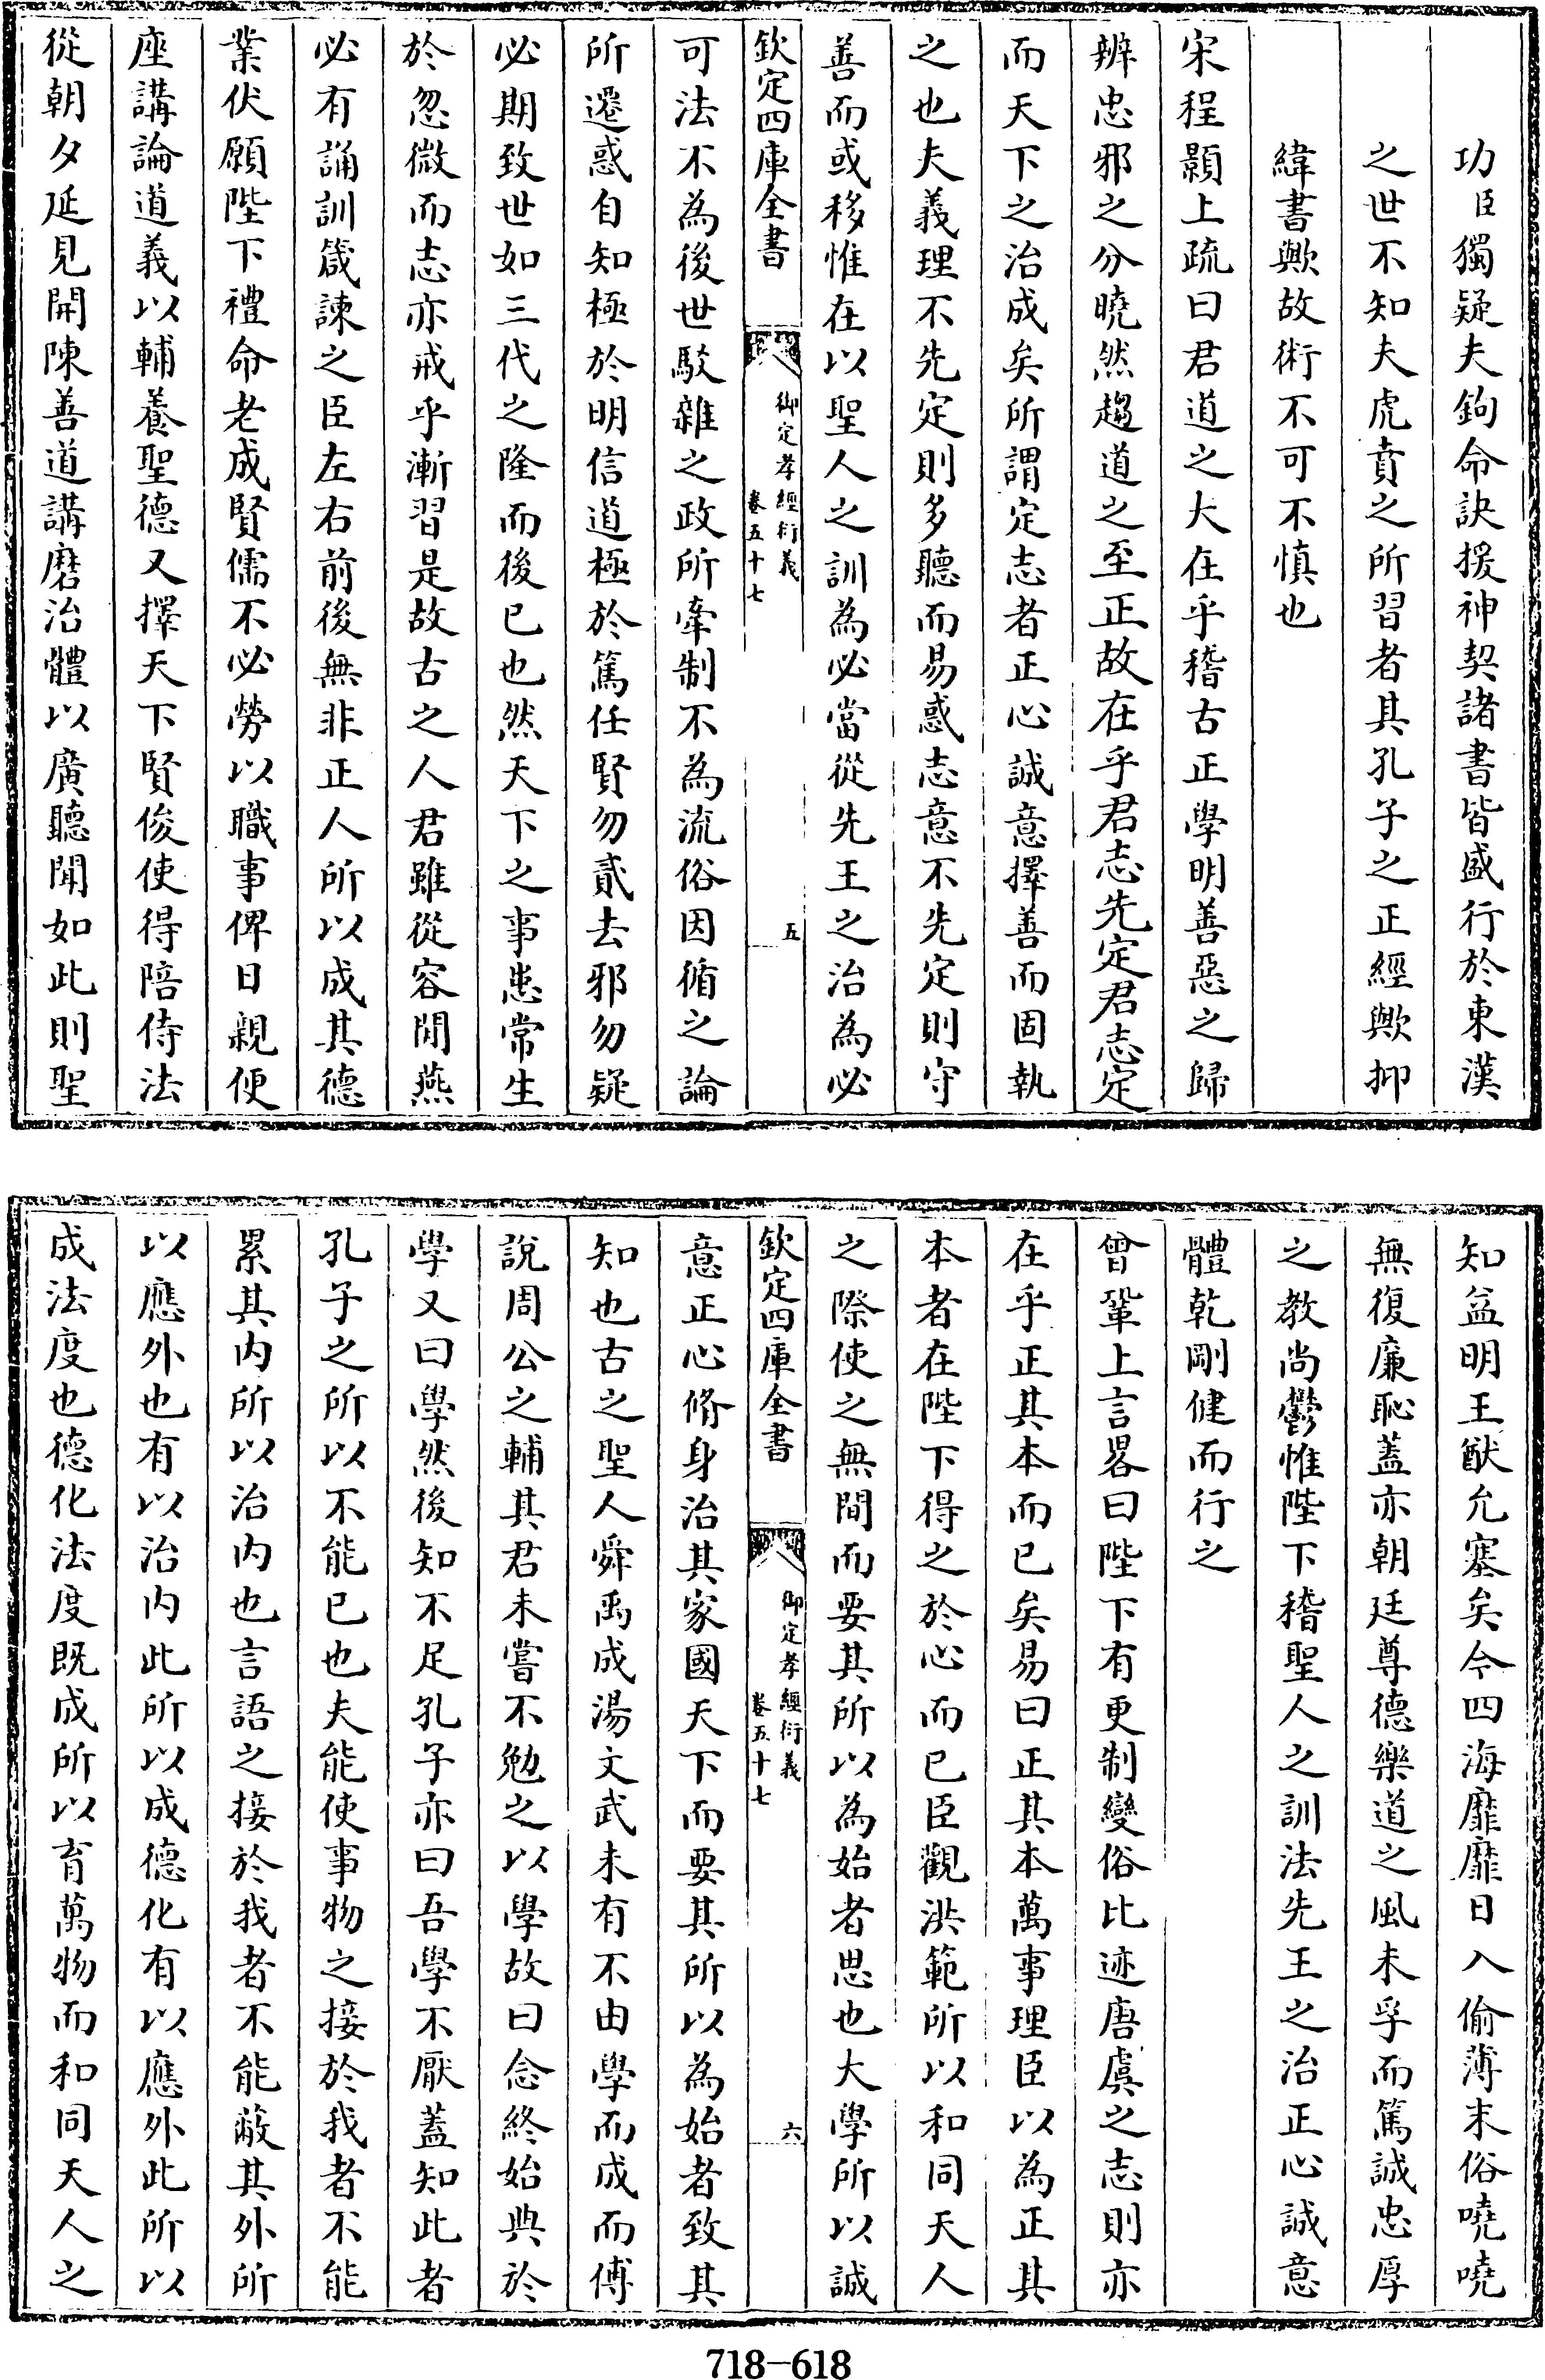 功臣獨疑夫鉤命訣援神契諸書皆盛行於東漢
之世不知夫虎賁之所習者其孔子之正經歟抑
緯書歟故術不可不慎也
宋程顥上疏曰君道之大在乎稽古正學明善惡之歸
辨忠邪之分曉然趨道之至正故在乎君志先定君志定
而天下之治成矣所謂定志者正心誠意擇善而固執
之也夫義理不先定則多聽而易惑志意不先定則守
善而或移惟在以聖人之訓為必當從先王之治為必
欽定四庫全書
御定孝經衍義
卷五十七
五
可法不為後世駁雜之政所牽制不為流俗因循之論
所遷惑自知極於明信道極於篤任賢勿貳去邪勿疑
必期致世如三代之隆而後已也然天下之事患常生
於忽微而志亦戒乎漸習是故古之人君雖從容閒燕
必有誦訓箴諫之臣左右前後無非正人所以成其德
業伏願陛下禮命老成賢儒不必勞以職事俾日親便
座講論道義以輔養聖德又擇天下賢俊使得陪侍法
從朝夕延見開陳善道講磨治體以廣聽聞如此則聖
知益明王猷允塞矣今四海靡靡日入偷薄末俗嘵嘵
無復廉恥蓋亦朝廷尊德樂道之風未孚而篤誠忠厚
之教尚鬱惟陛下稽聖人之訓法先王之治正心誠意
體乾剛健而行之
曾鞏上言畧曰陛下有更制變俗比迹唐虞之志則亦
在乎正其本而已矣易曰正其本萬事理臣以為正其
本者在陛下得之於心而已臣觀洪範所以和同天人
之際使之無間而要其所以為始者思也大學所以誠
欽定四庫全書
御定孝經衍義
卷五十七
六
意正心脩身治其家國天下而要其所以為始者致其
知也古之聖人舜禹成湯文武未有不由學而成而傅
說周公之輔其君未嘗不勉之以學故曰念終始典於
學又曰學然後知不足孔子亦曰吾學不厭蓋知此者
孔子之所以不能已也夫能使事物之接於我者不能
累其内所以治内也言語之接於我者不能蔽其外所
以應外也有以治内此所以成德化有以應外此所以
成法度也德化法度既成所以育萬物而和同天人之
718-618